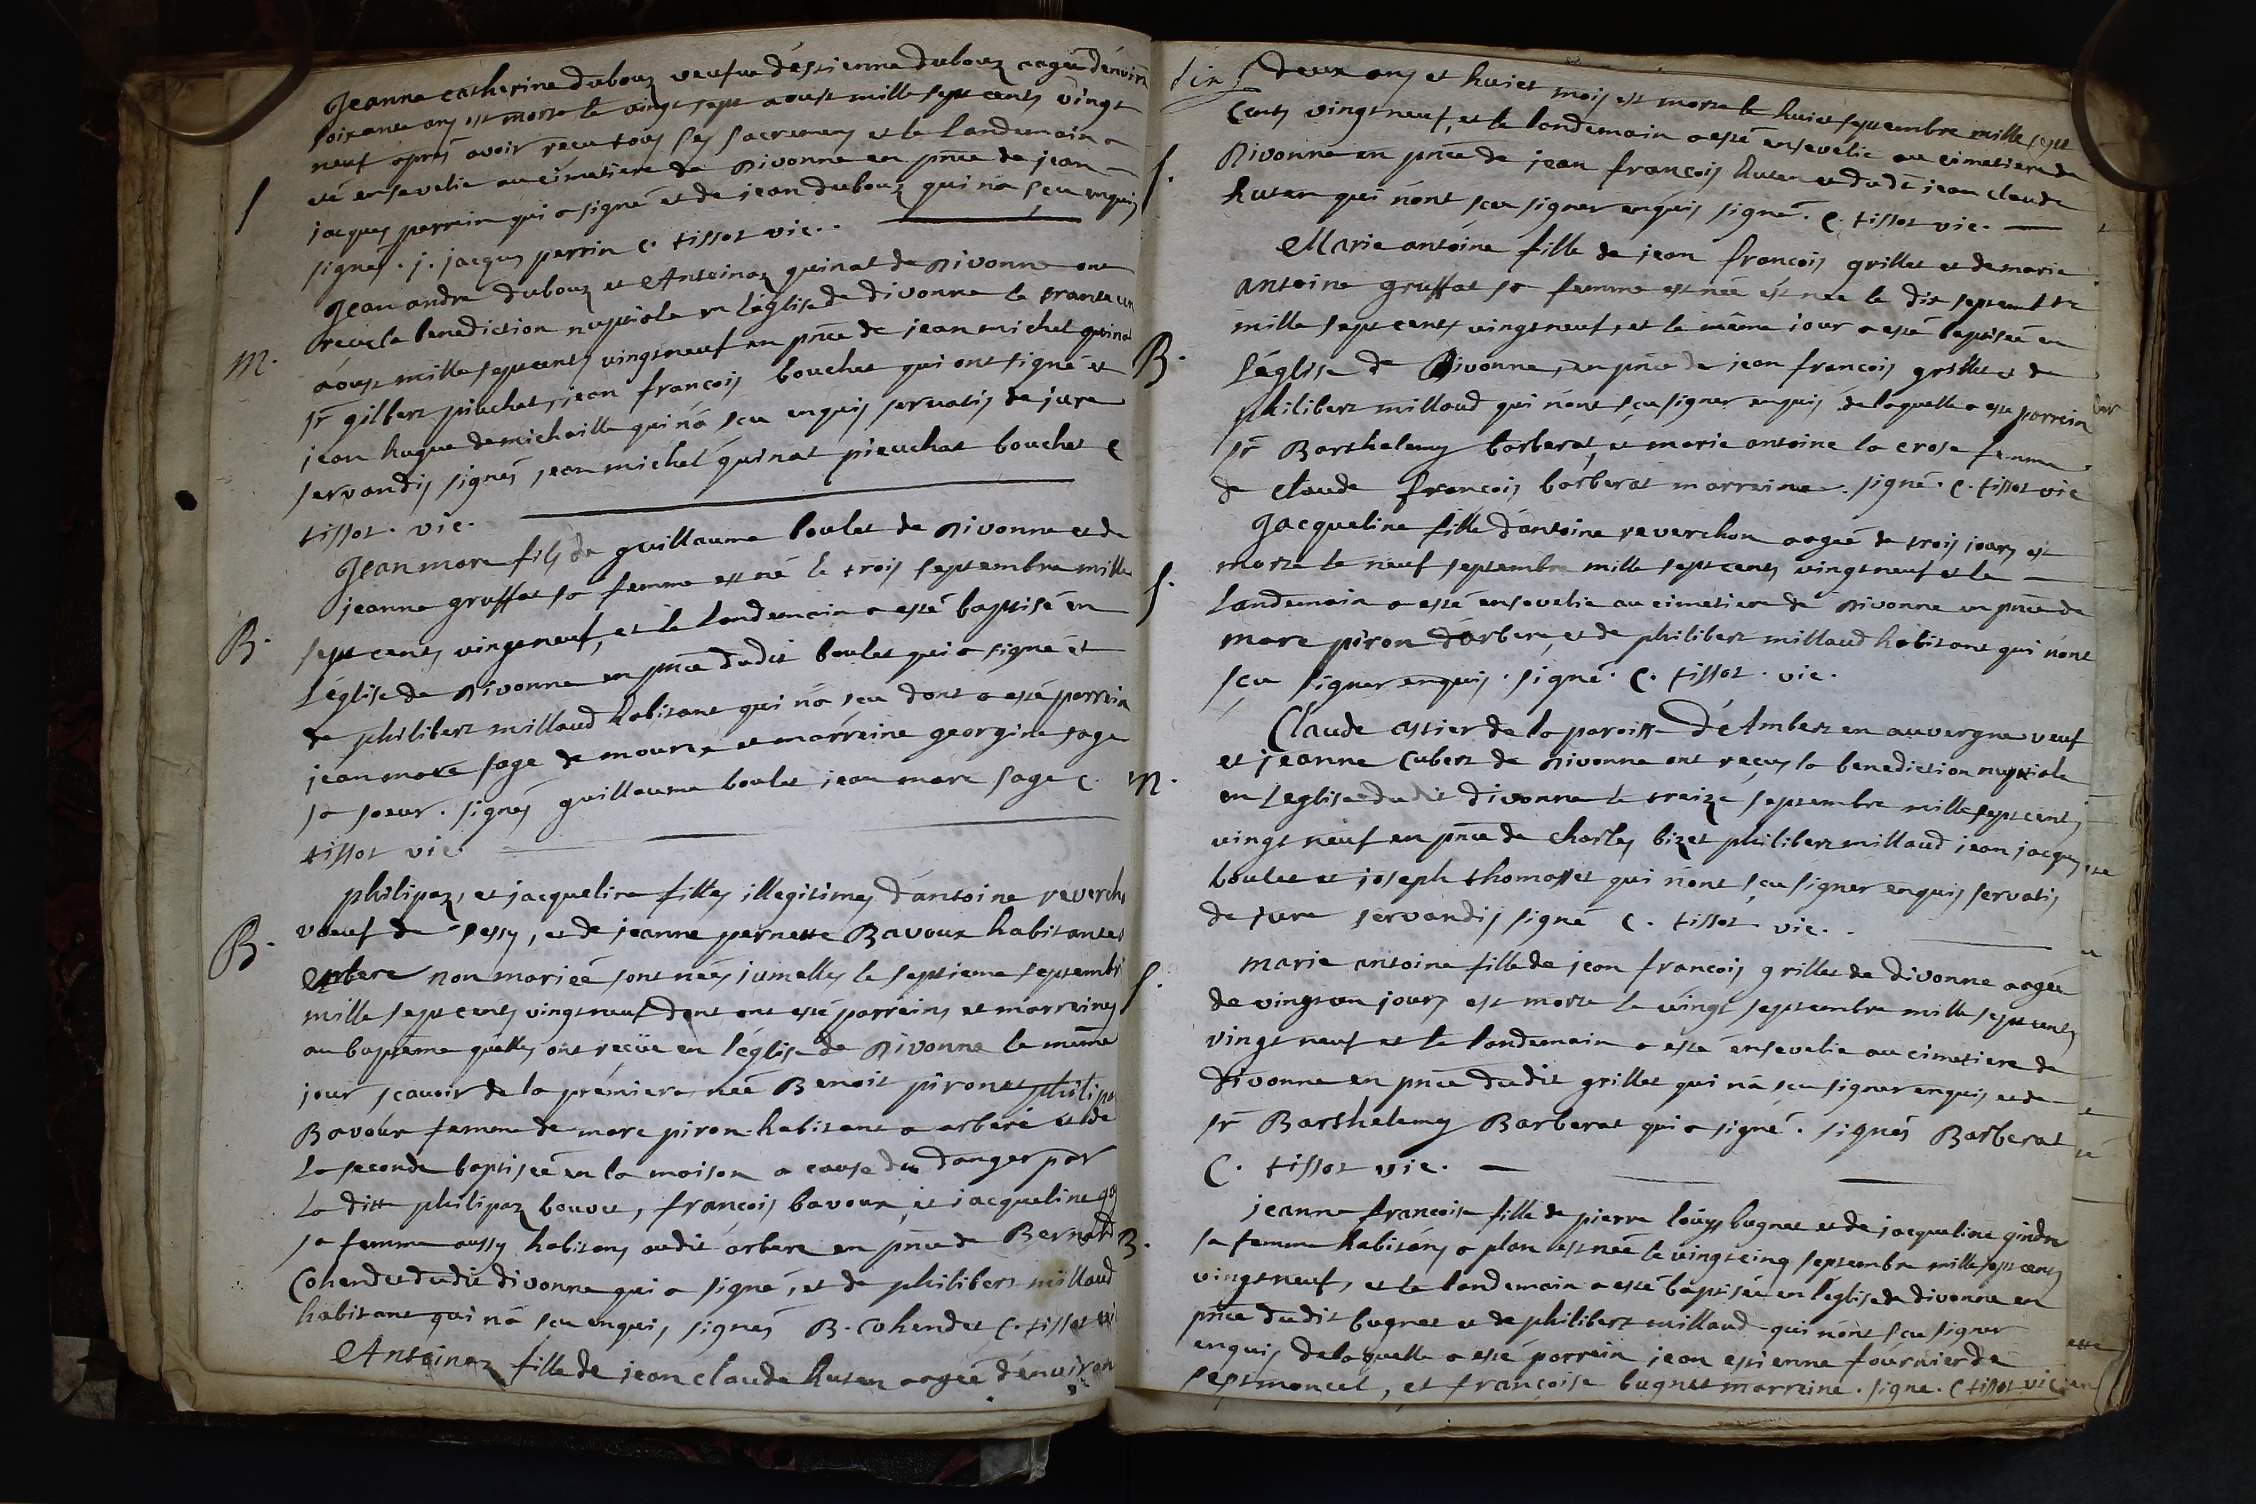 Jeanne catherine dubouz veufve déstienne dubouz aagée d'environ
soixante ans est morte le vingt sept aoust mille sept cents vingt
neuf aprés avoir recu tous ses sacremens et le landemain a
eté ensevelie au cimetiere de Divonne en pñce de jean
S
jacques perrin qui a signé et de jean dubouz qui n'a sçu enquis
signer. j. jacques perrin C. tissot vic.
Jean andre dubouz et Antoinaz quinat de Divonne ont
recu la benediction nuptiale en l'église de divonne le trante un
m.
aoust mille sept cents vingt neuf en pñce de jean michel quinat
sr gilbert pieuchat, jean françois bouchet qui ont signé et
jean hugue demichaille qui n'a sceu enquis servatis de jure
servandis signés jean michel quinat pieuchat bouchet C
tissot. vic.
Jean marc fils de guillaume boulet de Divonne et de
jeanne gruffat sa femme est né le trois septembre mille
B.
sept cents vingt neuf, et le landemain a esté baptisé en
l'église de Divonne en pñce dudit boulet qui a signé et
de philibert millaud habitant qui n'a sceu dont a esté parrein
jean marc sage de mource et marreine georgine sage
sa soeur. signés guillaume boulet jean marc sage C.
tissot vic
philipaz, et jacqueline filles illegitimes d'antoine reverchon
B.
vœuf de Sessy, et de jeanne pernette Bavoux habitante
arbere non mariée sont nées jumelles le septieme septembre
mille sept cents vingt neuf dont ont esté parreins et marreines
au baptême quelles ont reçüe en l'église de Divonne le même
jour scavoir de la prémiere née Benoit piron et philipaz
Bavoux femme de marc piron habitant a arbere et de
la seconde baptisée en la maison a cause du danger par
la ditte philipaz bavou, françois bavoux, et jacqueline
sa femme aussy habitans audit arbere en pñce de Bernard
Cohendet dudit divonne qui a signé, et de philibert millaud
habitant qui n'a sceu enquis, signés B. Cohendet C. tissot vi
Antoinaz fille de jean claude huten aagée d'environ
deux ans et huict mois est morte le huict septembre mille sept
cents vingt neuf, et le landemain a esté ensevelie au cimetiere de
S.
Divonne en pñce de jean françois huten et dudt jean claude
huten qui n'ont sceu signer enquis signé. C. tissot vic.
Marie antoine fille de jean françois grillet et de marie
antoine gruffat sa femme est née ést née le dit septembre
mille sept cents vingt neuf, et le même jour a esté baptisée en
B.
l'église de Divonne, en pñce de jean françois grillet et de
philibert millaud qui n'ont sçu signer enquis de laquelle a esté parrein
sr Barthelemy barberat, et marie antoine la crose femme
de claude françois barberat marreine. signé. C. tissot vic
Jacqueline fille d'antoine reverchon aagée de trois jours est
morte le neuf septembre mille sept cents vingt neuf et le
S.
landemain a esté ensevelie au cimetiere de Divonne en pñce de
marc piron d'arbere, et de philibert millaud habitant qui n'ont
sçu signer enquis. signé. C. tissot. vic.
Claude assier de la paroisse D'Ambert en auvergne veuf
et jeanne Cubert de Divonne ont reçus la benediction nuptiale
m.
en leglise dudit divonne le traize septembre mille sept cents
vingt neuf en pñce de charles bizet philibert millaud jean jacques
boulet et joseph thomasset qui n'ont sçu signer enquis servatis
de jure servandis signé C. tissot vic.
marie antoine fille de jean françois grillet de divonne aagée
S.
de vingt un jours est morte le vingt septembre mille sept cents
vingt neuf et le landemain a esté ensevelie au cimetiere de
Divonne en pñce dudit grillet qui n'a sceu signer enquis et de
sr Barthelemy Barberat qui a signé. signés Barberat
C. tissot vic.
jeanne francoise fille de pierre loüys bugnet et de jacqueline gindre
B.
sa femme habitans a plan est née le vingt cinq septembre mille sept cents
vingt neuf, et le landemain a esté baptisée en l'église de divonne en
pñce dudit bugnet et de philibert millaud qui n'ont sceu signer
enquis de laquelle a esté parrein jean estienne fournier de
septmoncel, et françoise bugnet marreine. signe. C tissot vic